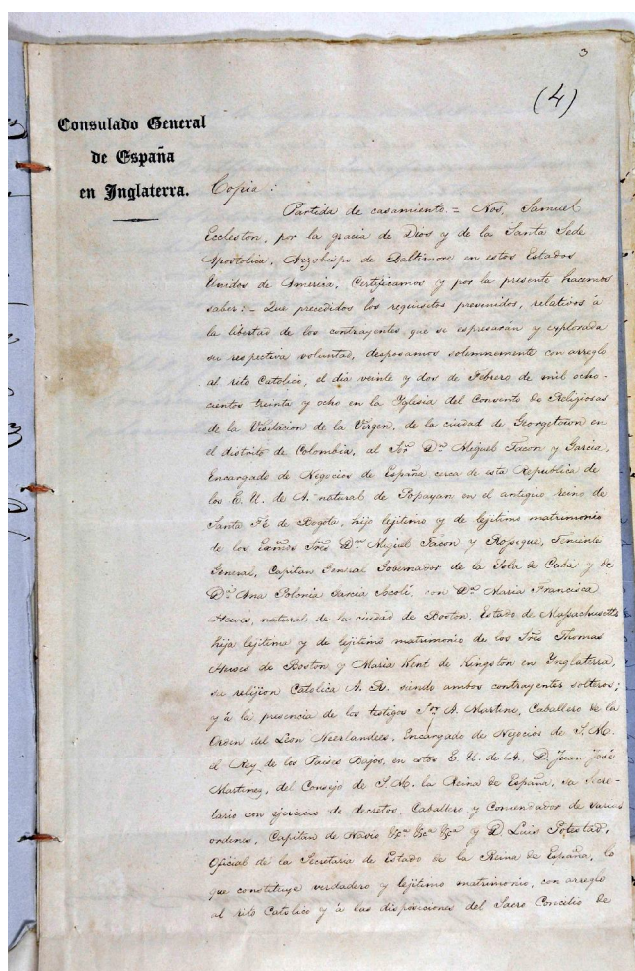 3
(4)
Consulado General
de España
en Inglaterra.
Copia:
Partida de casamiento. = Nos, Samuel
Eccleston, por la gracia de Dios y de la Santa Sede
Apostolica, Arzobispo de Baltimore en estos Estados
Unidos de America, Certificamos y por la presente hacemos
saber: - Que precedidos los requisitos prevenidos, relativos à
la libertad de los contrayentes que se espresarán y esplorada
su respectiva voluntad, desposamos solemnemente con arreglo
al rito Catolico, el dia veinte y dos de Febrero de mil ocho-
cientos treinta y ocho en la Yglesia del Convento de Religiosas
de la Visitacion de la Virgen, de la ciudad de Georgetown en
el distrito de Colombia, al Sor. Dn. Miguel Tacon y Garcia,
Encargado de Negocios de España cerca de esta Republica de
los E. U. de A. natural de Popayan en el antiguo reino de
Santa Fé de Bogota, hijo lejitimo y de lejitimo matrimonio
de los Exmos Sres Dn. Miguel Tacon y Rosique, Teniente
General, Capitan General Gobernador de la Ysla de Cuba y de
Da. Ana Polonia Garcia Socoli, con Da. Maria Francisca
Hewes, natural de la ciudad de Boston, Estado de Massachusetts
hija lejitima y de lejitimo matrimonio de los Sres Thomas
Hewes de Boston y Maria Kent de Kingston en Ynglaterra,
su relijion Catolica A. R. siendo ambos contrayentes solteros;
y à la presencia de los testigos Sor. A. Martini, Caballero de la
Orden del Leon Neerlandes, Encargado de Negocios de S. M.
el Rey de los Paises Bajos, en estos E. U. de A., D. Juan José
Martinez, del Consejo de S. M. la Reina de España, su Secre-
tario con ejercicio de decretos, Caballero y Comendador de varias
ordenes, Capitan de Navio &ca &ca &ca y D. Luis Potestad,
Oficial de la Secretaria de Estado de la Reina de España, lo
que constituye verdadero y lejitimo matrimonio, con arreglo
al rito Catolico y à las disposiciones del Sacro Concilio de